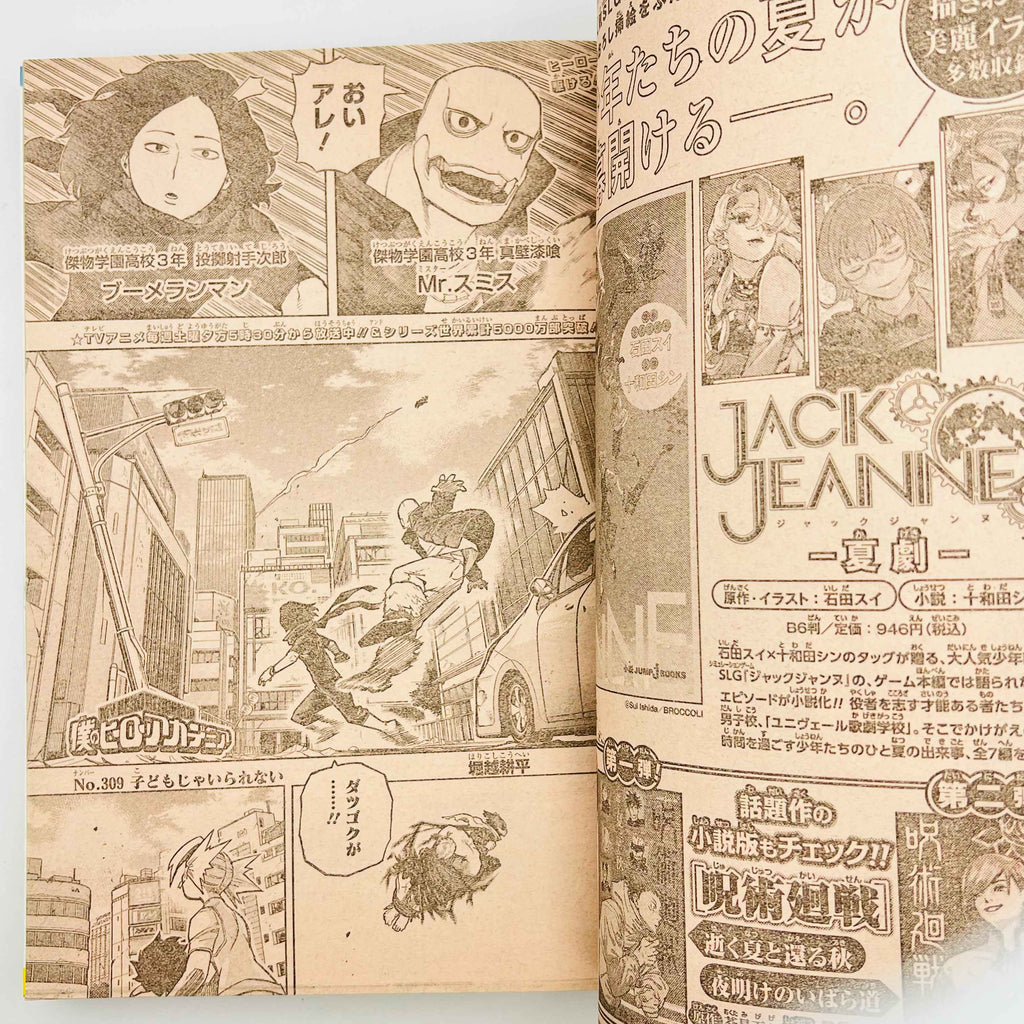 おい
アレ!
ヒーロー
駆ける
傑物学園高校3年 真壁漆喰
Mr.スミス
傑物学園高校3年 投擲射手次郎
ブーメランマン
☆TVアニメ毎週土曜夕方5時30分から放送中!!&シリーズ世界累計5000万部突破!
僕のヒーローアカデミア
堀越耕平
No.309 子どもじゃいられない
ダツゴクが
……!!
年たちの夏が
開ける――。
美麗イラ
多数収録
石田スイ
十和田シン
JUMP J BOOKS
©Sui Ishida/BROCCOLI
JACK
JEANNE
ジャックジャンヌ
―夏劇―
原作・イラスト:石田スイ
小説:十和田シ
B6判/定価:946円(税込)
石田スイ×十和田シンのタッグが贈る、大人気少年
SLG「ジャックジャンヌ」の、ゲーム本編では語られ
エピソードが小説化!! 役者を志す才能ある者たち
男子校、「ユニヴェール歌劇学校」。そこでかけがえ
時間を過ごす少年たちのひと夏の出来事、全7編を
第一弾!
第二弾
話題作の
小説版もチェック!!
呪術廻戦
逝く夏と還る秋
夜明けのいばら道
呪術廻戦